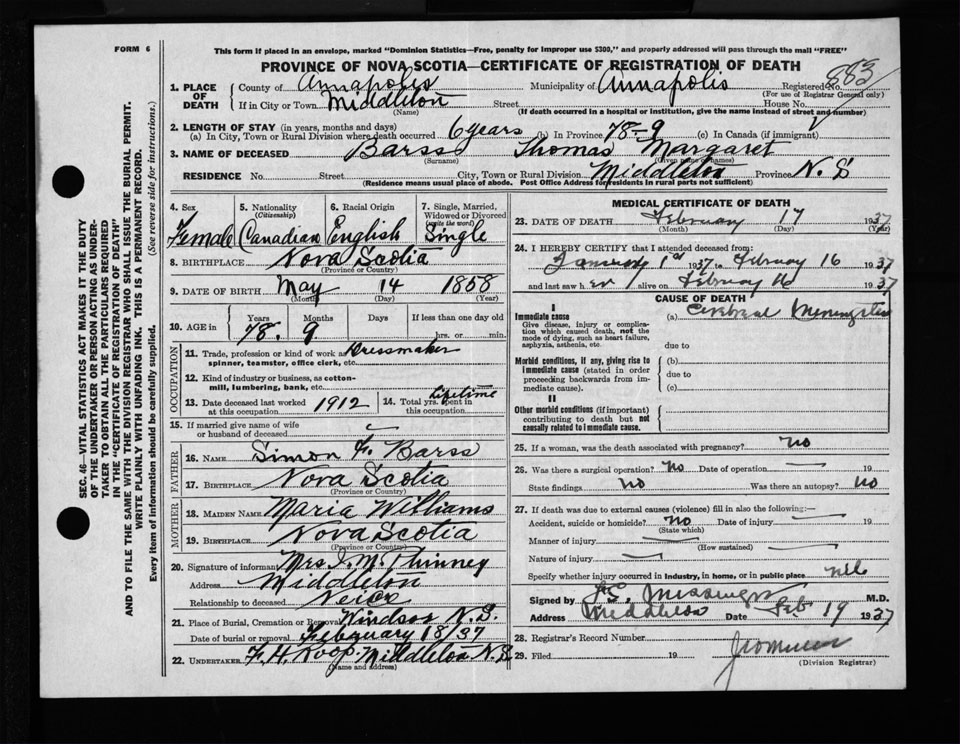 FORM 6
This form if placed in an envelope, marked "Dominion Statistics—Free, penalty for improper use $300," and properly addressed will pass through the mail "FREE"
PROVINCE OF NOVA SCOTIA—CERTIFICATE OF REGISTRATION OF DEATH
1. PLACE OF DEATH County of Annapolis Municipality of Annapolis Registered No. 883
(For use of Registrar General only)
If in City or Town Middleton Street House No.
(Name) (If death occurred in a hospital or institution, give the name instead of street and number)
2. LENGTH OF STAY (in years, months and days)
(a) In City, Town or Rural Division where death occurred 6 years (b) In Province 78-9 (c) In Canada (if immigrant)
3. NAME OF DECEASED Barss Thomas Margaret
(Surname) (Given name or names)
RESIDENCE No. Street City, Town or Rural Division Middleton Province N.S
(Residence means usual place of abode. Post Office Address for residents in rural parts not sufficient)
4. Sex 5. Nationality (Citizenship) 6. Racial Origin 7. Single, Married, Widowed or Divorced (write the word)
Female Canadian English Single
8. BIRTHPLACE Nova Scotia
(Province or Country)
9. DATE OF BIRTH May 14 1858
(Month) (Day) (Year)
10. AGE in Years Months Days If less than one day old
78. 9 hrs. or min.
OCCUPATION
11. Trade, profession or kind of work as spinner, teamster, office clerk, etc. Dressmaker
12. Kind of industry or business, as cotton-mill, lumbering, bank, etc.
13. Date deceased last worked at this occupation 1912 14. Total yrs. spent in this occupation Lifetime
15. If married give name of wife or husband of deceased
FATHER
16. NAME Simon F. Barss
17. BIRTHPLACE Nova Scotia
(Province or Country)
MOTHER
18. MAIDEN NAME Maria Williams
19. BIRTHPLACE Nova Scotia
(Province or Country)
20. Signature of informant Mrs. I. M. Phinney
Address Middleton
Relationship to deceased Neice
21. Place of Burial, Cremation or Removal Windsor N.S.
Date of burial or removal February 18/37
22. UNDERTAKER F. H. Roop. Middleton N.S
(Name and address)
MEDICAL CERTIFICATE OF DEATH
23. DATE OF DEATH February 17 1937
(Month) (Day) (Year)
24. I HEREBY CERTIFY that I attended deceased from:
January 1st 1937 to February 16 1937
and last saw h er alive on February 16 1937
CAUSE OF DEATH
I
Immediate cause (a) Cerebral Meningitis
Give disease, injury or complication which caused death, not the mode of dying, such as heart failure, asphyxia, asthenia, etc.
due to
Morbid conditions, if any, giving rise to immediate cause (stated in order proceeding backwards from immediate cause).
(b)
due to
(c)
II
Other morbid conditions (if important) contributing to death but not causally related to immediate cause.
25. If a woman, was the death associated with pregnancy? no
26. Was there a surgical operation? No Date of operation 19
State findings no Was there an autopsy? no
27. If death was due to external causes (violence) fill in also the following:—
Accident, suicide or homicide? no Date of injury 19
(State which)
Manner of injury
(How sustained)
Nature of injury
Specify whether injury occurred in Industry, in home, or in public place
Signed by Messenger M.D.
Address Middleton Date Feb. 19 1937
28. Registrar's Record Number
29. Filed 19
(Division Registrar)
SEC. 46—VITAL STATISTICS ACT MAKES IT THE DUTY
OF THE UNDERTAKER OR PERSON ACTING AS UNDERTAKER TO OBTAIN ALL THE PARTICULARS REQUIRED
IN THE "CERTIFICATE OF REGISTRATION OF DEATH"
AND TO FILE THE SAME WITH THE DIVISION REGISTRAR WHO SHALL ISSUE THE BURIAL PERMIT.
WRITE PLAINLY WITH UNFADING INK. THIS IS A PERMANENT RECORD.
Every item of information should be carefully supplied. (See reverse side for instructions.)